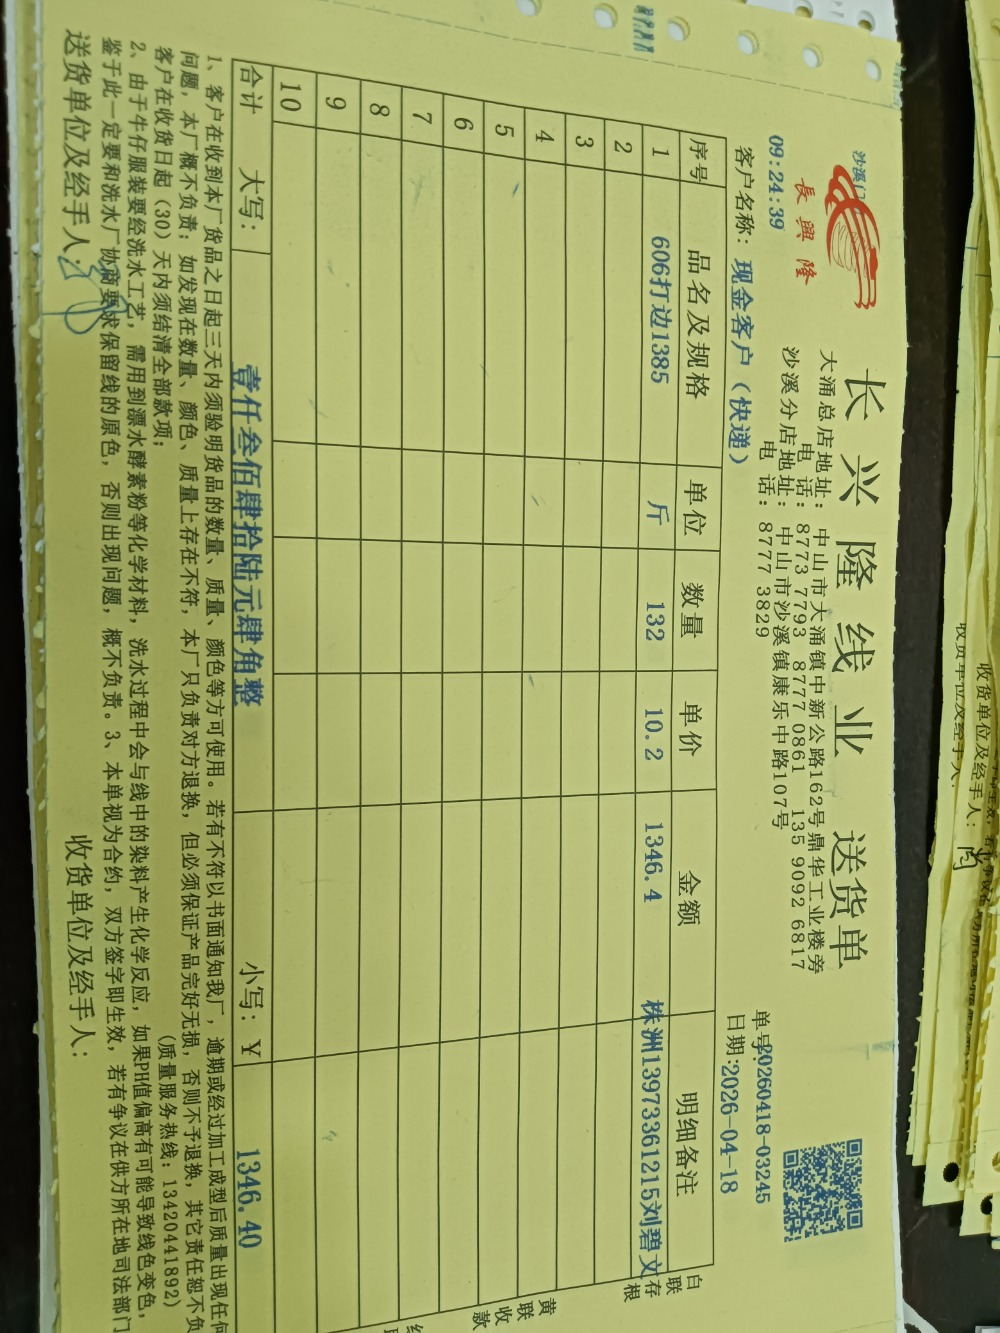 長興隆
沙溪门
09:24:39
长兴隆线业 送货单
大涌总店地址：中山市大涌镇中新公路162号鼎华工业楼旁
电话：8773 7793 8777 0861 135 9092 6817
沙溪分店地址：中山市沙溪镇康乐中路107号
电话：8777 3829
单号:20260418-03245
客户名称：现金客户（快递）
日期:2026-04-18
序号 品名及规格 单位 数量 单价 金额 明细备注
1 606打边1385 斤 132 10.2 1346.4 株洲13973361215刘碧文
2
3
4
5
6
7
8
9
10
合计 大写： 壹仟叁佰肆拾陆元肆角整 小写：￥ 1346.40
白联存根
黄联收款
1、客户在收到本厂货品之日起三天内须验明货品的数量、质量、颜色等方可使用。若有不符以书面通知我厂，逾期或经过加工成型后质量出现任何
问题，本厂概不负责；如发现在数量、颜色、质量上存在不符，本厂只负责对方退换，但必须保证产品完好无损，否则不予退换，其它责任恕不负
客户在收货日起（30）天内须结清全部款项；
（质量服务热线：13420441892）
2、由于牛仔服装要经洗水工艺，需用到漂水酵素粉等化学材料，洗水过程中会与线中的染料产生化学反应，如果PH值偏高有可能导致线色变色，
鉴于此一定要和洗水厂协商要求保留线的原色，否则出现问题，概不负责。3、本单视为合约，双方签字即生效，若有争议在供方所在地司法部门
送货单位及经手人：
收货单位及经手人：
收货单位及经手人：
收货单位及经手人：